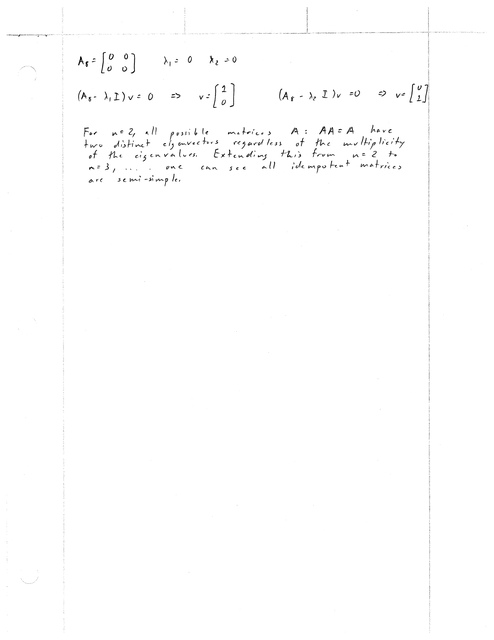 A₈ = [0 0; 0 0] λ₁ = 0 λ₂ = 0
(A₈ - λ₁I)v = 0 => v = [1; 0] (A₈ - λ₂I)v = 0 => v = [0; 1]
For n=2, all possible matrices A : AA = A have
two distinct eigenvectors regardless of the multiplicity
of the eigenvalues. Extending this from n=2 to
n=3, ... one can see all idempotent matrices
are semi-simple.